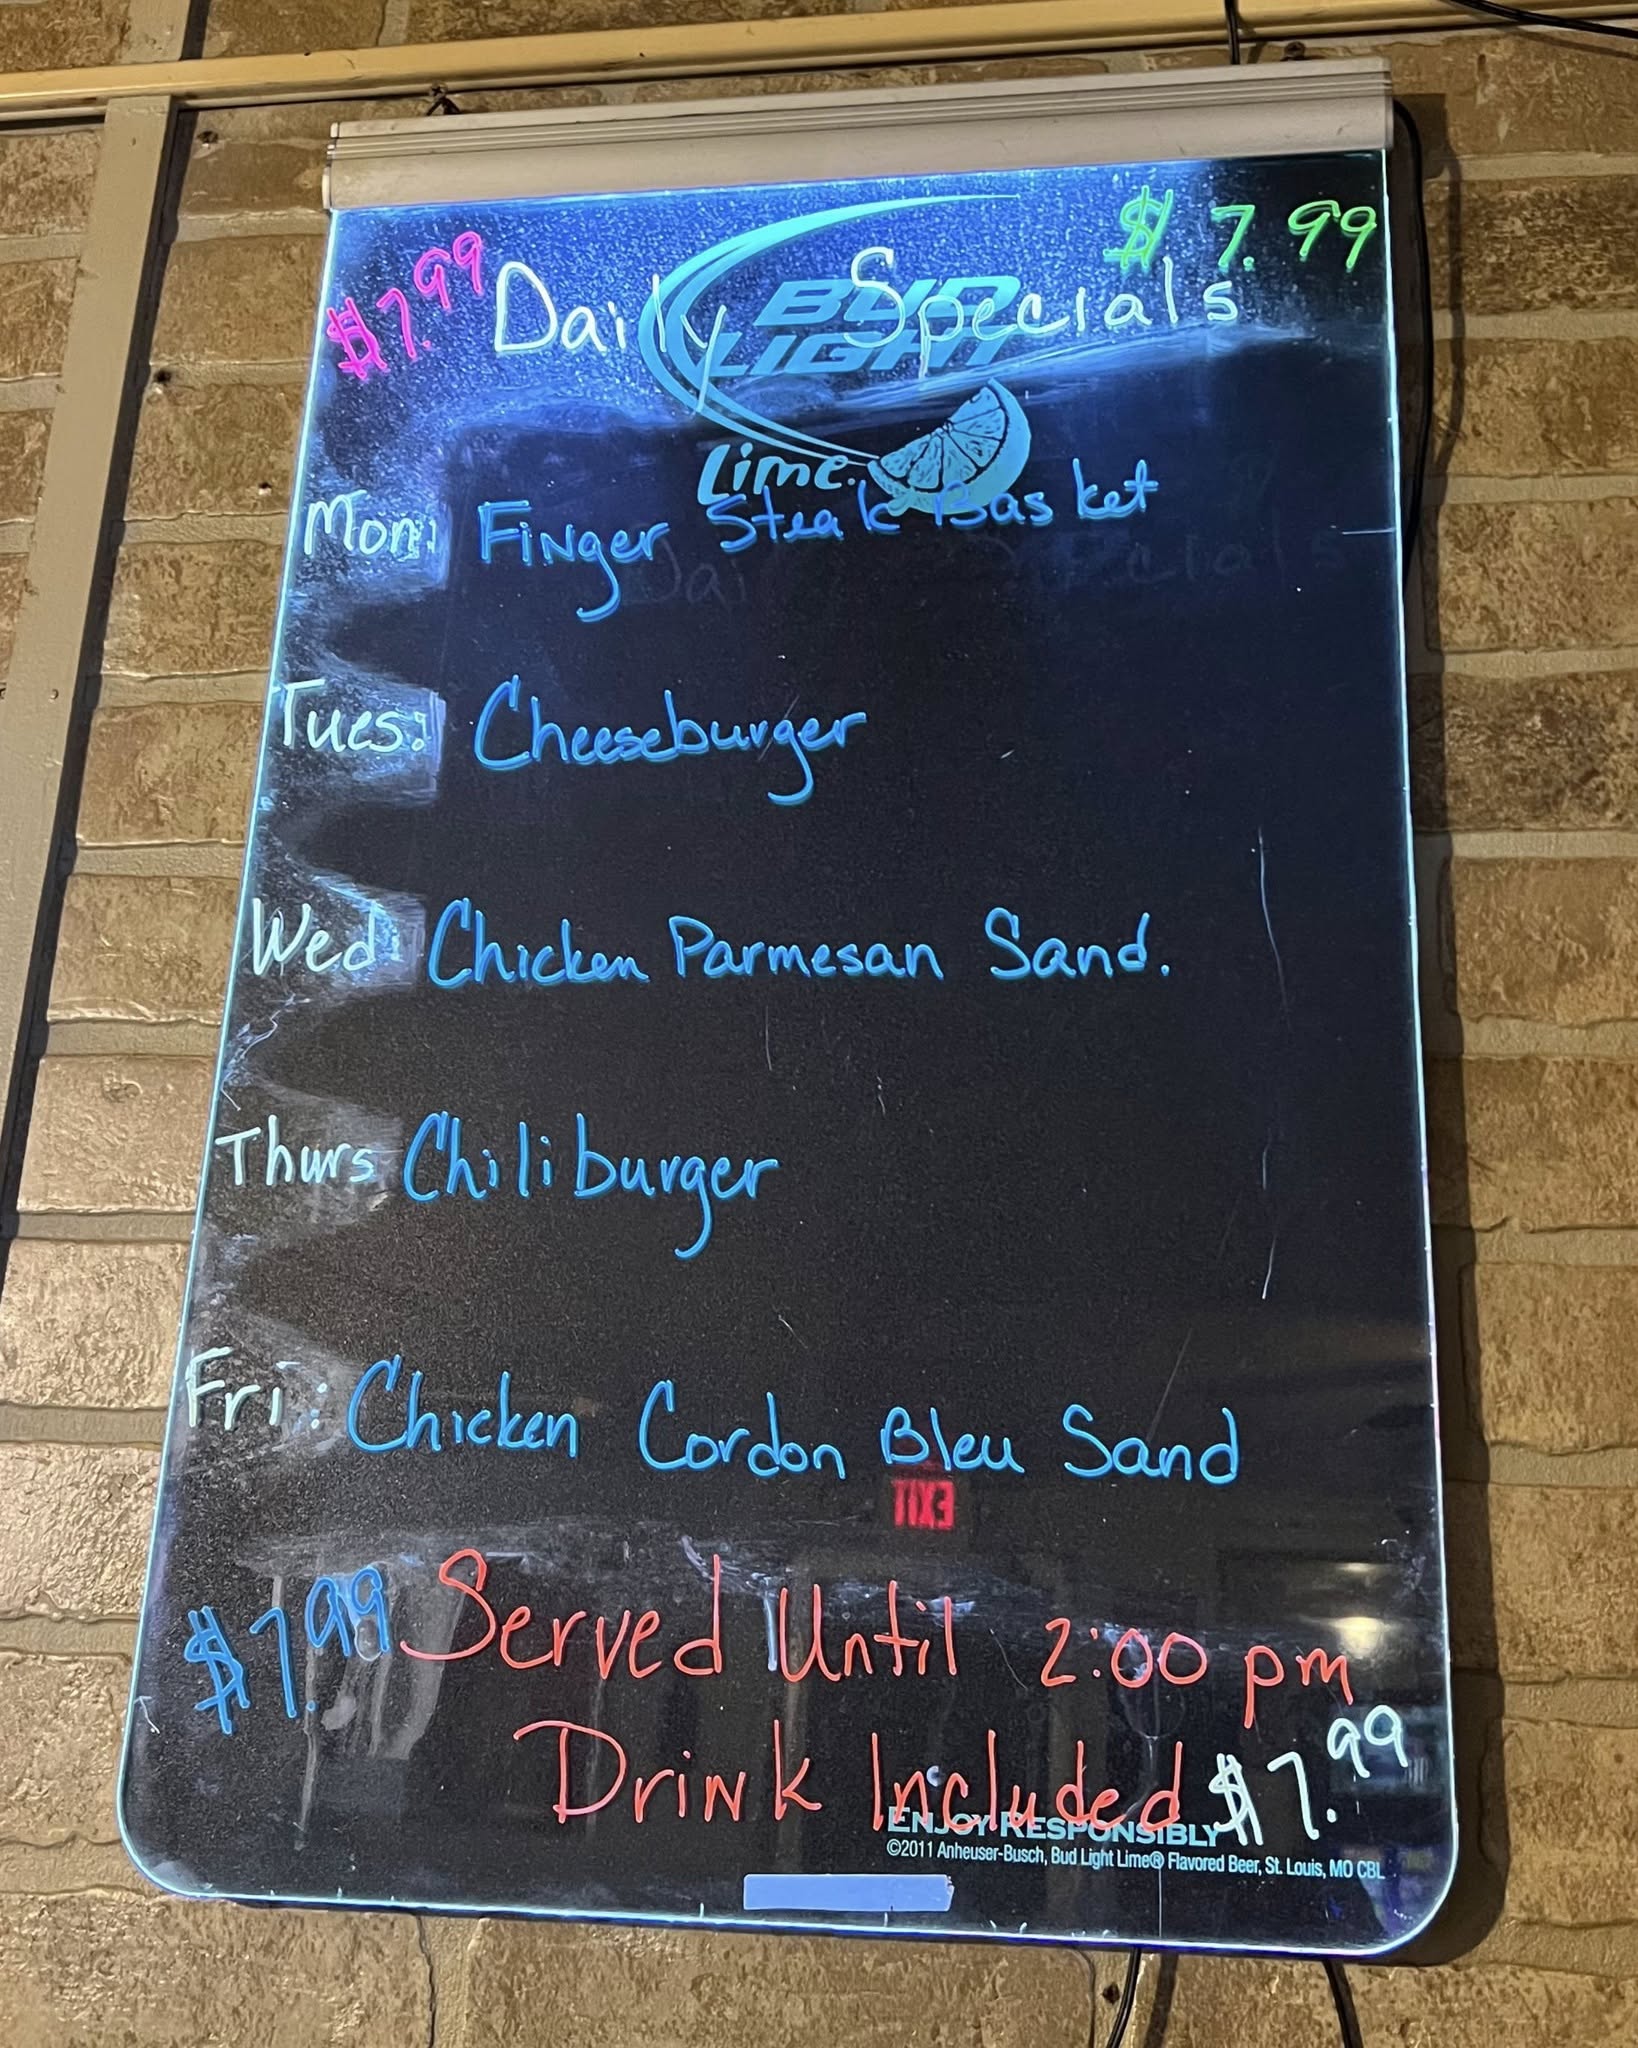 $7.99 Daily Specials $7.99
BUD
LIGHT
Lime.
Mon: Finger Steak Basket
Tues: Cheeseburger
Wed Chicken Parmesan Sand.
Thurs Chiliburger
Fri: Chicken Cordon Bleu Sand
EXIT
$7.99 Served Until 2:00 pm
Drink Included $7.99
ENJOY RESPONSIBLY
©2011 Anheuser-Busch, Bud Light Lime® Flavored Beer, St. Louis, MO CBL